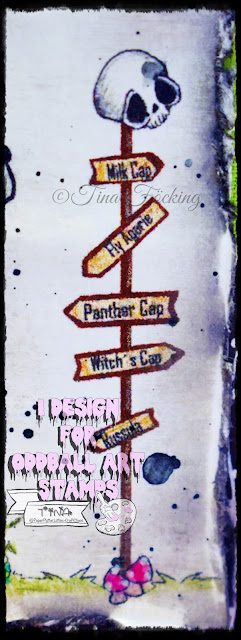 Milk Cap
©Tina Föcking
Fly Agaric
Panther Cap
Witch´s Cap
Russula
I DESIGN
FOR
ODDBALL ART
STAMPS
TINA